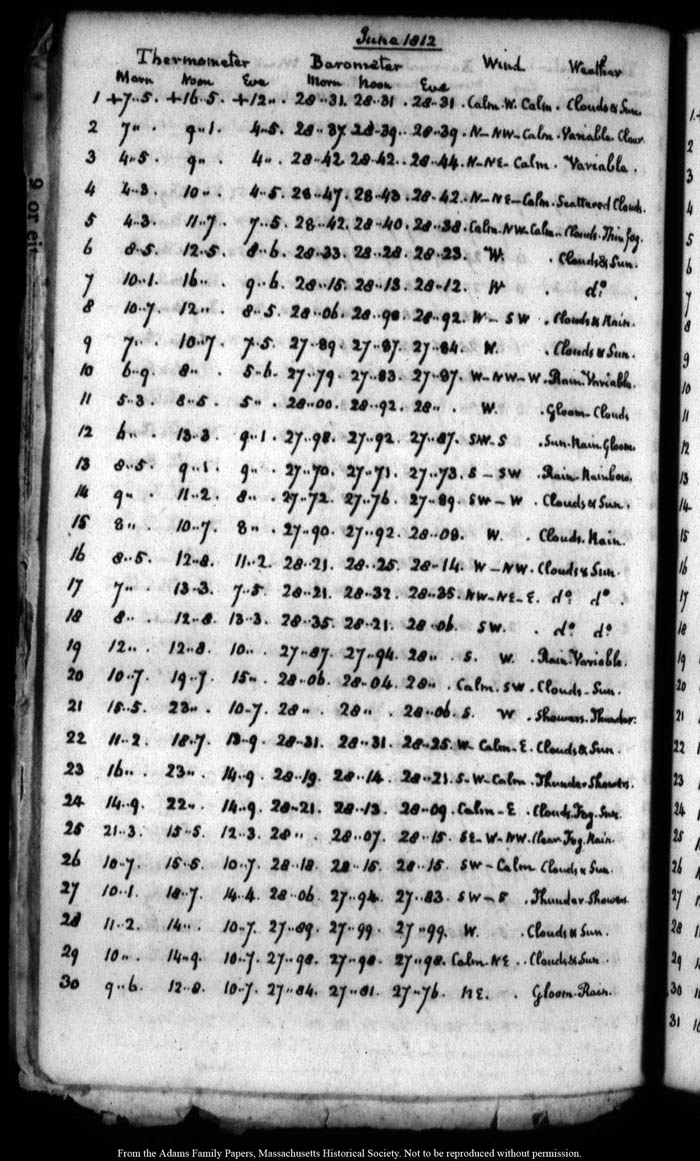 June 1812
Thermometer Barometer Wind Weather
Morn Noon Eve Morn Noon Eve
1 +7··5. +16··5. +12·· 28··31. 28··31 28··31. Calm. W. Calm. Clouds & Sun.
2 7·· 9··1. 4··5. 28··37. 28··39. 28··39. N-NW-Calm. Variable. Clear.
3 4··5. 9·· 4·· 28··42. 28··42. 28··44. N-NE-Calm. Variable.
4 4··3. 10·· 4··5. 28··47. 28··43. 28··42. N-NE-Calm. Scattered Clouds.
5 4··3. 11··7 7··5. 28··42. 28··40. 28··38. Calm. NW. Calm. Clouds. Thin fog.
6 8··5. 12··5 8··6. 28··33. 28··28. 28··23. W. Clouds & Sun.
7 10··1. 16·· 9··6. 28··15. 28··13. 28··12. W do.
8 10··7. 12·· 8··5. 28··06. 28··98. 28··92. W-SW. Clouds & Rain.
9 7·· 10··7. 7··5. 27··89. 27··87. 27··84. W. Clouds & Sun.
10 6··9. 8·· 5··6. 27··79. 27··83. 27··87. W-NW-W. Rain. Variable.
11 5··3. 8··5. 5·· 28··00. 28··92. 28·· W. Gloom-Clouds
12 6·· 13··3. 9··1 27··98. 27··92. 27··87. SW-S Sun. Rain. Gloom.
13 8··5. 9··1. 9·· 27··70. 27··71. 27··73. S-SW Rain. Rainbow.
14 9·· 11··2. 8·· 27··72. 27··76. 27··89. SW-W. Clouds & Sun.
15 8·· 10··7. 8·· 27··90. 27··92. 28··09. W. Clouds. Rain.
16 8··5. 12··8. 11··2. 28··21. 28··25. 28··14. W-NW. Clouds & Sun.
17 7·· 13··3. 7··5. 28··21. 28··32. 28··35. NW-NE-E. do. do.
18 8·· 12··8. 13··3. 28··35. 28··21. 28··06. SW. do. do.
19 12·· 12··8 10·· 27··87. 27··94. 28·· S. W. Rain. Variable.
20 10··7. 19··7. 15·· 28··06. 28··04. 28·· Calm. SW. Clouds-Sun.
21 15··5. 23·· 10··7. 28·· 28·· 28··06. S. W Showers. Thunder.
22 11··2. 18··7. 13··9. 28··31. 28··31. 28··25. W. Calm-E. Clouds & Sun.
23 16·· 23·· 14··9. 28··19. 28··14. 28··21. S-W-Calm. Thunder Showers.
24 14··9. 22·· 14··9. 28··21. 28··13. 28··09. Calm-E. Clouds. Fog. Sun.
25 21··3. 15··5. 12··3. 28·· 28··07. 28··15. SE-W-NW. Clear. Fog. Rain.
26 10··7. 15··5. 10··7. 28··18. 28··15. 28··15. SW-Calm Clouds & Sun.
27 10··1. 18··7. 14··4. 28··06. 27··94. 27··83. SW-S Thunder. Showers.
28 11··2. 14·· 10··7. 27··89. 27··99. 27··99. W. Clouds & Sun.
29 10·· 14··9. 10··7. 27··98. 27··98. 27··98. Calm-NE. Clouds & Sun
30 9··6. 12··8. 10··7. 27··84. 27··81. 27··76. NE. Gloom-Rain.
From the Adams Family Papers, Massachusetts Historical Society. Not to be reproduced without permission.